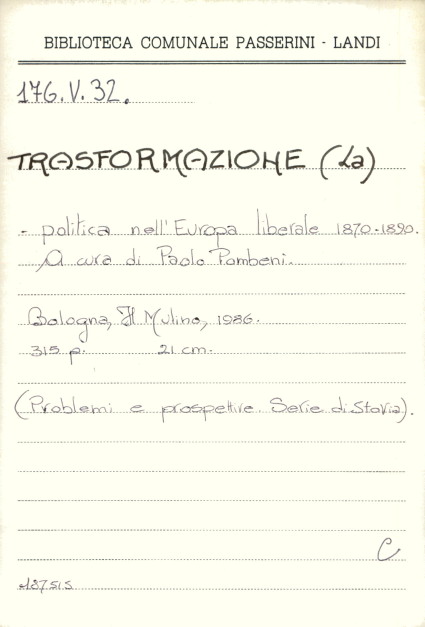 BIBLIOTECA COMUNALE PASSERINI - LANDI
176.V.32.
TRASFORMAZIONE (La)
- politica nell'Europa liberale 1870-1890.
A cura di Paolo Pombeni.
Bologna, Il Mulino, 1986.
315 p. 21 cm.
(Problemi e prospettive. Serie di Storia).
C